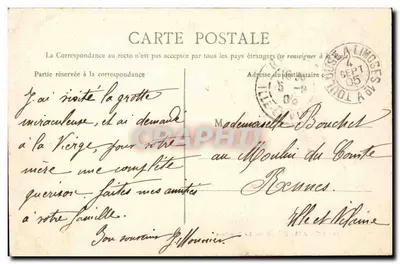 CARTE POSTALE
La Correspondance au recto n'est pas acceptée par tous les pays étrangers (se renseigner à
Partie réservée à la correspondance
Adresse du destinataire
TOULOUSE A LIMOGES
4
SEPT
05
J'ai visité la grotte
miraculeuse, et ai demandé
à la Vierge, pour votre
mère une complète
guérison. faites mes amitiés
à votre famille.
Bon souvenir
Mademoiselle Bouchet
au Moulin du Comte
Rennes
Ille et Vilaine